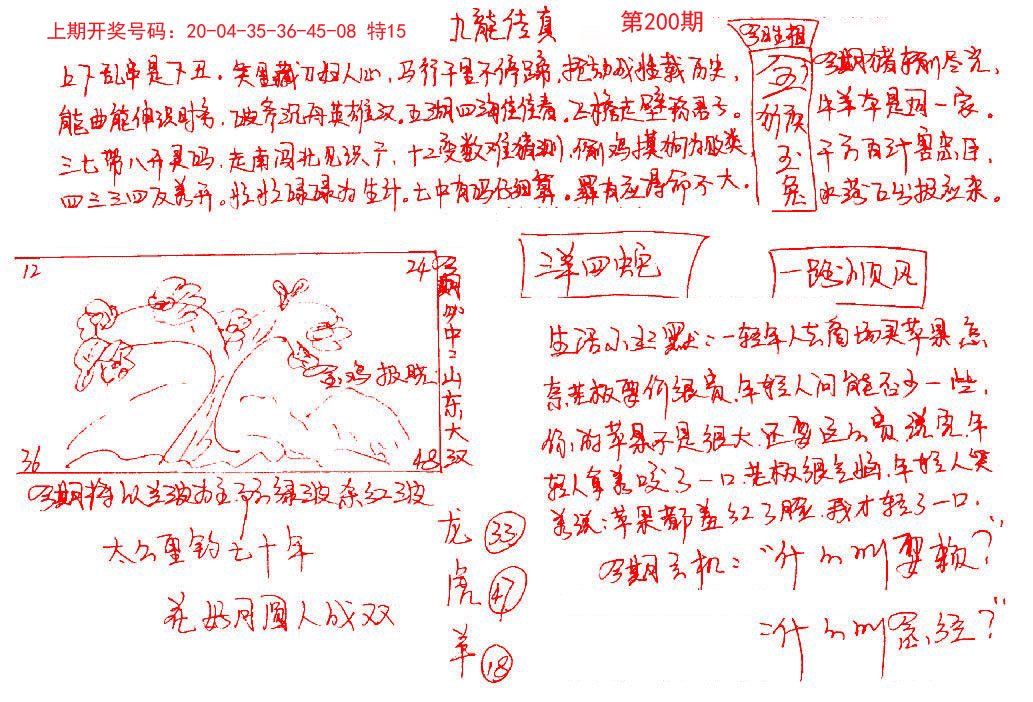 上期开奖号码：20-04-35-36-45-08 特15
九龍传真
第200期
今日生相
上下乱串是下丑。笑里藏刀扫人心，马行千里不停蹄，推动战推载历史，
能曲能伸识时务，破斧沉舟英雄汉。五湖四海任往春。飞檐走壁
三七带八开灵码，走南闯北见识广，十二变数难猜测，偷鸡摸狗为败类，
四三三四反差开。忙忙碌碌为生计。七中有码仔细算。罪有应得命不大。
玉
猴
玉
兔
今期猪
牛羊本是同一家。
千方百计
水落石出
三羊四兔
一路顺风
12
24
36
48
玉鸡报晓
今期必中：山东大汉
今期特以兰波为主，防绿波杀红波
太公垂钓七十年
花好月圆人成双
龙 33
虎 47
羊 18
生活小幽默：一轻年人去商场买苹果
奈老板要价很贵，年轻人问能否少一些，
你的苹果不是很大，还要这么贵，说完年
轻人拿着咬了一口，老板很气恼，年轻人笑
着说：苹果都羞红了脸，我才轻了一口，
今期玄机：“什么叫耍赖？”
：什么叫